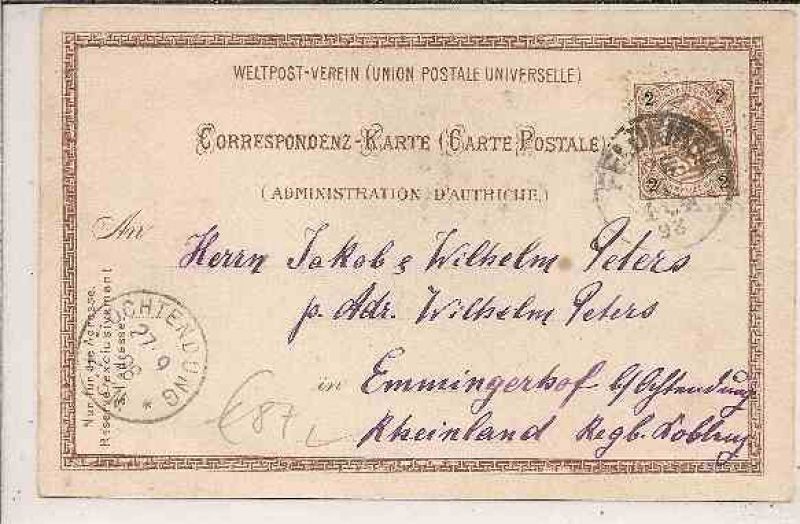 WELTPOST-VEREIN (UNION POSTALE UNIVERSELLE)
CORRESPONDENZ-KARTE (CARTE POSTALE)
(ADMINISTRATION D'AUTRICHE.)
2 2
2 2
98
An
Herrn Jakob & Wilhelm Peters
p. Adr. Wilhelm Peters
in Emmingerhof b/Ochtendung
Rheinland Regb. Koblenz
Nur für die Adresse.
Réservé exclusivement
à l'adresse.
OCHTENDUNG
27 9
98
*
€ 87